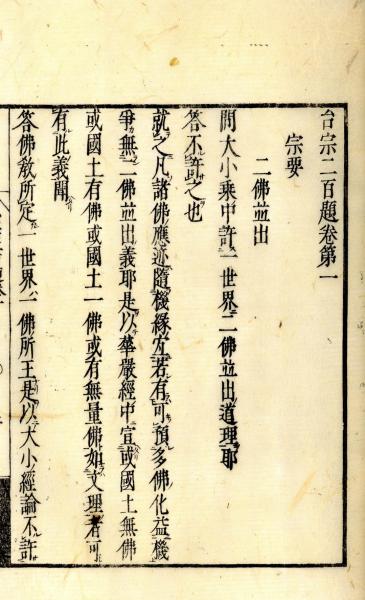 台宗二百題卷第一
宗要
二佛並出
問大小乘中許一世界二佛並出道理耶
答不許之也
就之凡諸佛應迹隨機緣宜若有可預多佛化益機
爭無二佛並出義耶是以華嚴經中宣或國土無佛
或國土有佛或國土一佛或有無量佛如文理者可
有此義聞
答佛教所定一世界一佛所王是以大小經論不許